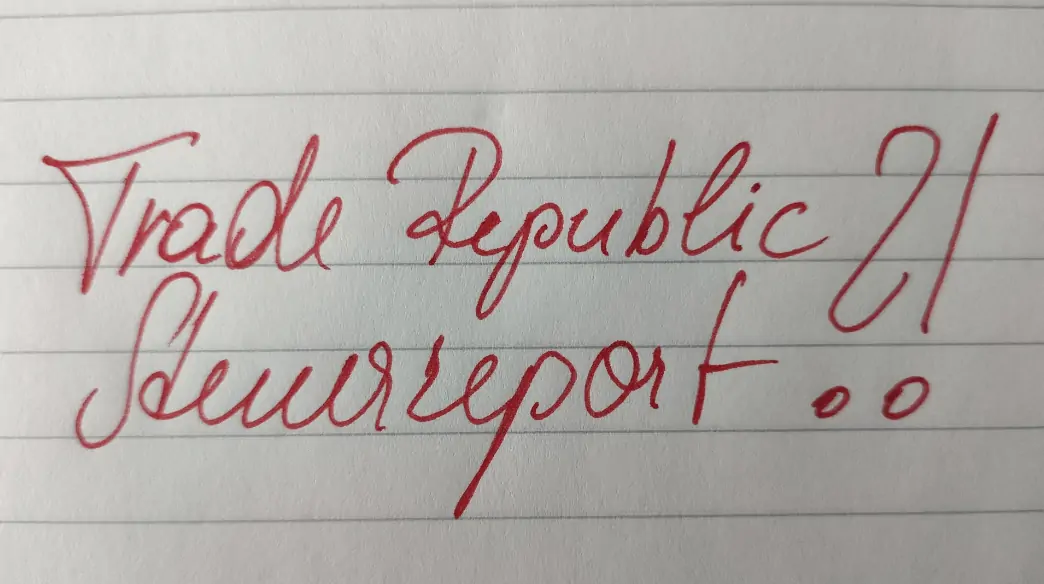 Trade Republic ?!
Steuerreport